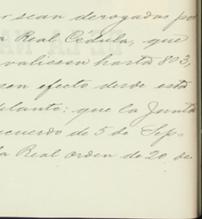 r sean derogadas po
Real Cedula, que
valiesen hasta 803,
con efecto desde esta
delante: que la Junta
cuerdo de 5 de Sep-
la Real orden de 20 de